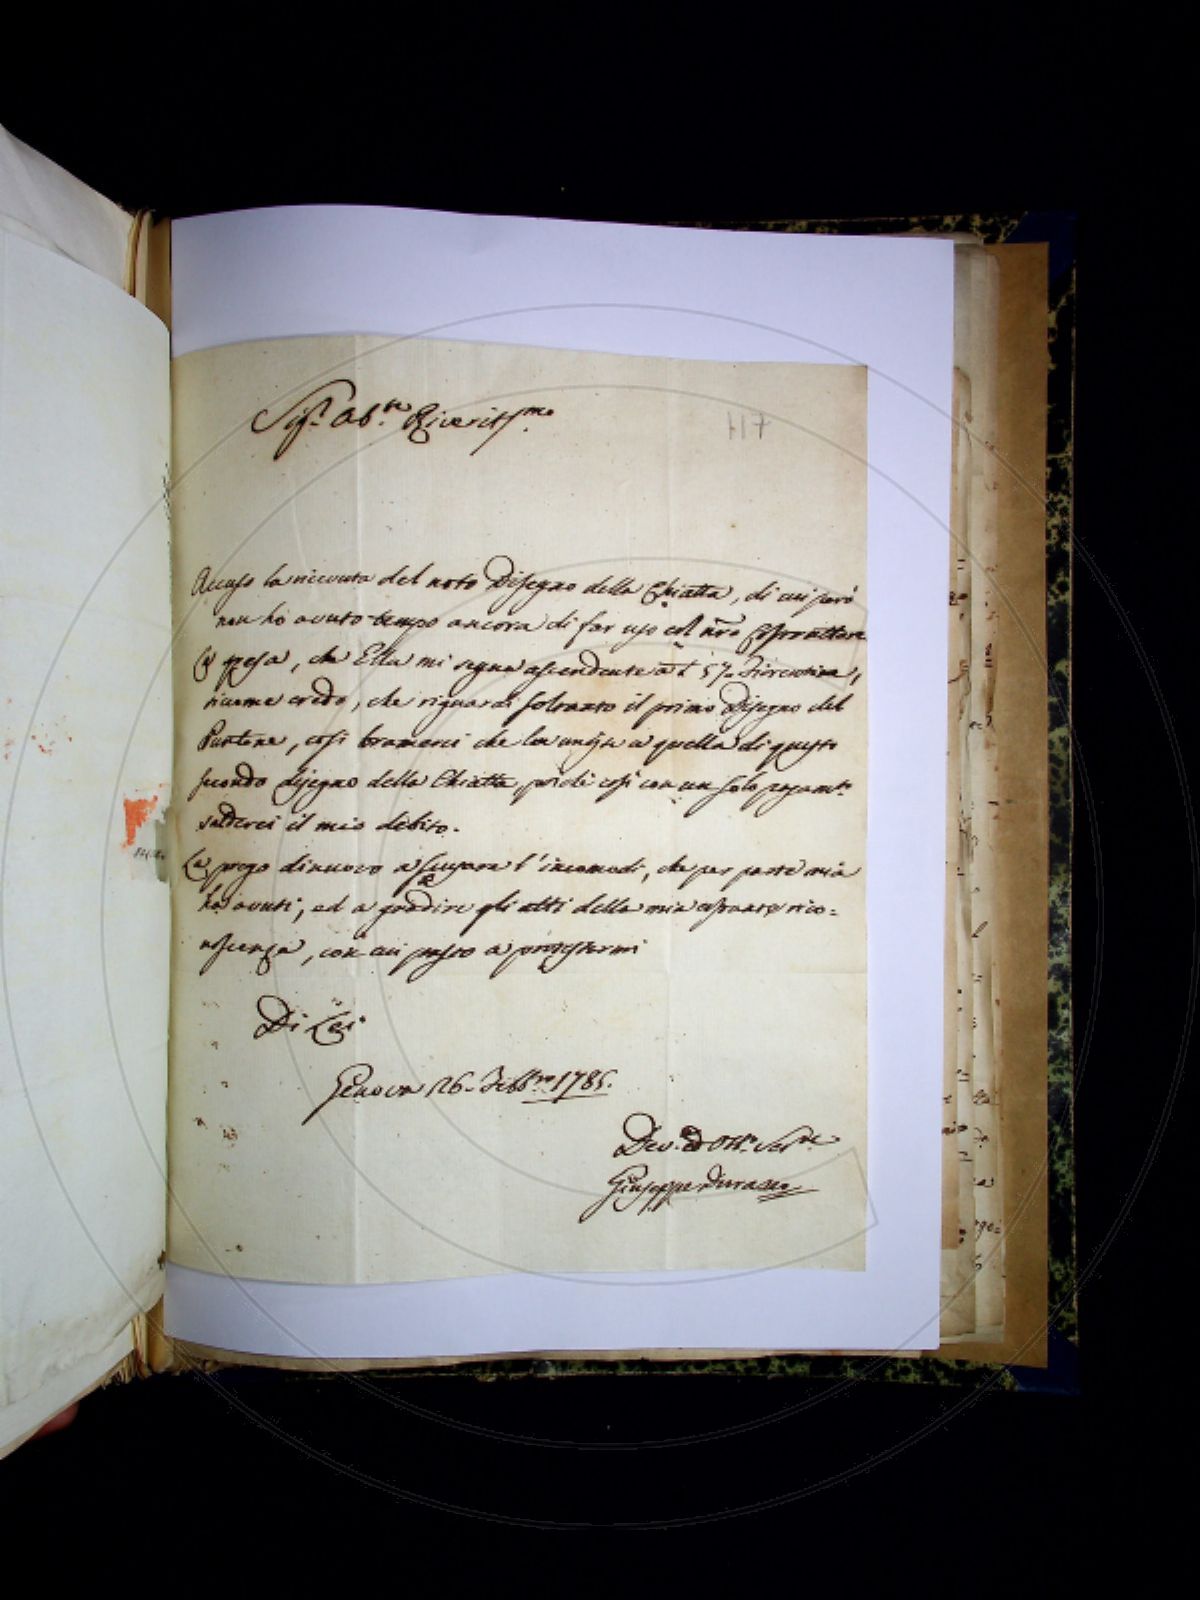 Sig.r Ab.te Riveritss.mo
117
Accuso la ricevuta del noto Disegno della Chiatta, di cui però
non ho avuto tempo ancora di far uso col nro
La spesa, che Ella mi segna ascendente a £ 57. Fiorentine,
siccome credo, che riguardi soltanto il primo Disegno del
Pontone, così bramerei che la unisse a quella di questo
secondo disegno della Chiatta, poichè così con un solo pagam.to
salderei il mio debito.
La prego di nuovo a scusare l'incomodi, che per parte mia
ha avuti, ed a gradire gli atti della mia rico=
noscenza, con cui passo a protestarmi
Di Lei
Genova 26. Febb.ro 1785.
Dev. ed Obb. Ser.re
Giuseppe Durazzo